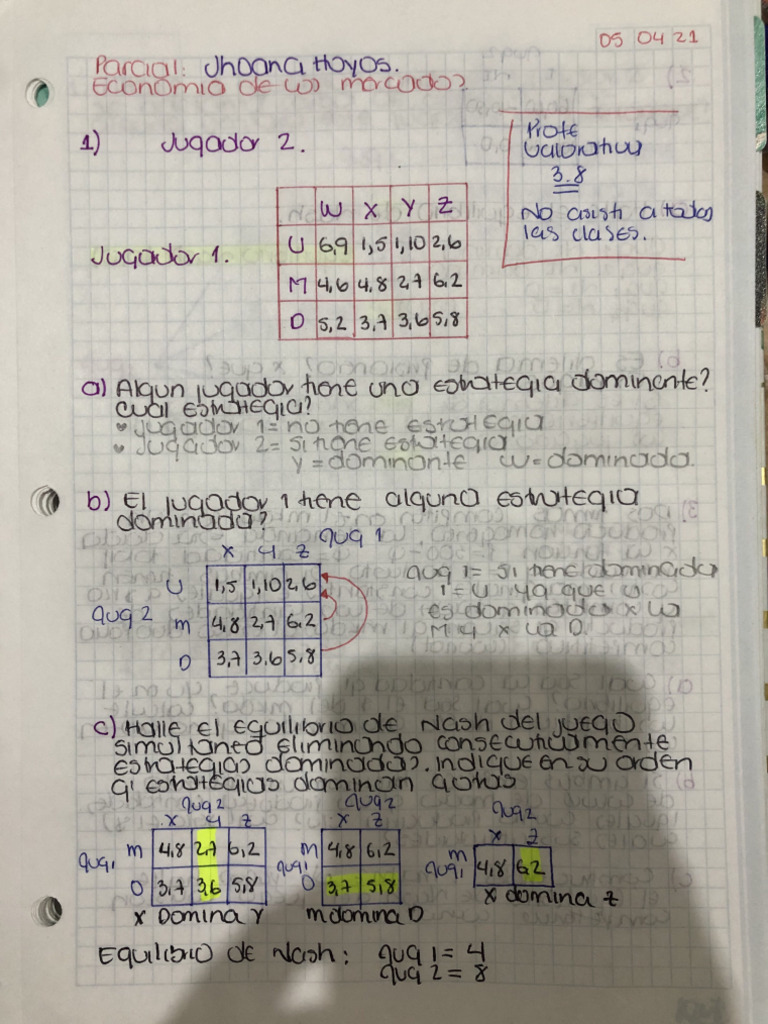 05 04 21
Parcial: Jhoana Hoyos.
Economia de los mercados
Profe
Valorativa
3.8
No asisti a todas
las clases.
1) Jugador 2.
W X Y Z
Jugador 1.
U 6,9 1,5 1,10 2,6
M 4,6 4,8 2,7 6,2
D 5,2 3,7 3,6 5,8
a) Algun jugador tiene una estrategia dominante?
cual estrategia?
• Jugador 1= no tiene estrategia
• Jugador 2= si tiene estrategia
Y = dominante W=dominada.
b) El jugador 1 tiene alguna estrategia
dominada?
Jug 1
X Y Z
U 1,5 1,10 2,6
Jug 2 M 4,8 2,7 6,2
D 3,7 3,6 5,8
Jug 1= si tiene dominada
1= U ya que U
es dominada x la
M y x la D.
c) Halle el Equilibrio de Nash del juego
simultaneo eliminando consecutivamente
estrategias dominadas. indique en su orden
q' estrategias dominan a otras
Jug 2
X Y Z
Jug 1 M 4,8 2,7 6,2
D 3,7 3,6 5,8
X Domina Y
Jug 2
X Z
Jug 1 M 4,8 6,2
D 3,7 5,8
M domina D
Jug 2
X Z
Jug 1 M 4,8 6,2
X domina Z
Equilibrio de Nash: Jug 1= 4
Jug 2 = 8